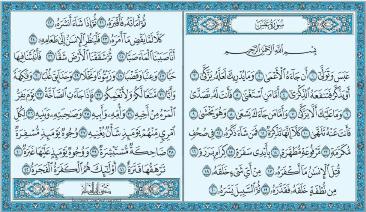 سُورَةُ عَبَسَ
بِسْمِ اللَّهِ الرَّحْمَٰنِ الرَّحِيمِ
عَبَسَ وَتَوَلَّىٰ ١ أَن جَاءَهُ الْأَعْمَىٰ ٢ وَمَا يُدْرِيكَ لَعَلَّهُ يَزَّكَّىٰ ٣
أَوْ يَذَّكَّرُ فَتَنفَعَهُ الذِّكْرَىٰ ٤ أَمَّا مَنِ اسْتَغْنَىٰ ٥ فَأَنتَ لَهُ تَصَدَّىٰ ٦
وَمَا عَلَيْكَ أَلَّا يَزَّكَّىٰ ٧ وَأَمَّا مَن جَاءَكَ يَسْعَىٰ ٨ وَهُوَ يَخْشَىٰ ٩
فَأَنتَ عَنْهُ تَلَهَّىٰ ١٠ كَلَّا إِنَّهَا تَذْكِرَةٌ ١١ فَمَن شَاءَ ذَكَرَهُ ١٢ فِي صُحُفٍ
مُّكَرَّمَةٍ ١٣ مَّرْفُوعَةٍ مُّطَهَّرَةٍ ١٤ بِأَيْدِي سَفَرَةٍ ١٥ كِرَامٍ بَرَرَةٍ ١٦
قُتِلَ الْإِنسَانُ مَا أَكْفَرَهُ ١٧ مِنْ أَيِّ شَيْءٍ خَلَقَهُ ١٨
مِن نُّطْفَةٍ خَلَقَهُ فَقَدَّرَهُ ١٩ ثُمَّ السَّبِيلَ يَسَّرَهُ ٢٠
ثُمَّ أَمَاتَهُ فَأَقْبَرَهُ ٢١ ثُمَّ إِذَا شَاءَ أَنشَرَهُ ٢٢
كَلَّا لَمَّا يَقْضِ مَا أَمَرَهُ ٢٣ فَلْيَنظُرِ الْإِنسَانُ إِلَىٰ طَعَامِهِ ٢٤
أَنَّا صَبَبْنَا الْمَاءَ صَبًّا ٢٥ ثُمَّ شَقَقْنَا الْأَرْضَ شَقًّا ٢٦ فَأَنبَتْنَا فِيهَا
حَبًّا ٢٧ وَعِنَبًا وَقَضْبًا ٢٨ وَزَيْتُونًا وَنَخْلًا ٢٩ وَحَدَائِقَ غُلْبًا ٣٠ وَفَاكِهَةً
وَأَبًّا ٣١ مَّتَاعًا لَّكُمْ وَلِأَنْعَامِكُمْ ٣٢ فَإِذَا جَاءَتِ الصَّاخَّةُ ٣٣ يَوْمَ يَفِرُّ
الْمَرْءُ مِنْ أَخِيهِ ٣٤ وَأُمِّهِ وَأَبِيهِ ٣٥ وَصَاحِبَتِهِ وَبَنِيهِ ٣٦ لِكُلِّ
امْرِئٍ مِّنْهُمْ يَوْمَئِذٍ شَأْنٌ يُغْنِيهِ ٣٧ وُجُوهٌ يَوْمَئِذٍ مُّسْفِرَةٌ ٣٨
ضَاحِكَةٌ مُّسْتَبْشِرَةٌ ٣٩ وَوُجُوهٌ يَوْمَئِذٍ عَلَيْهَا غَبَرَةٌ ٤٠
تَرْهَقُهَا قَتَرَةٌ ٤١ أُولَٰئِكَ هُمُ الْكَفَرَةُ الْفَجَرَةُ ٤٢